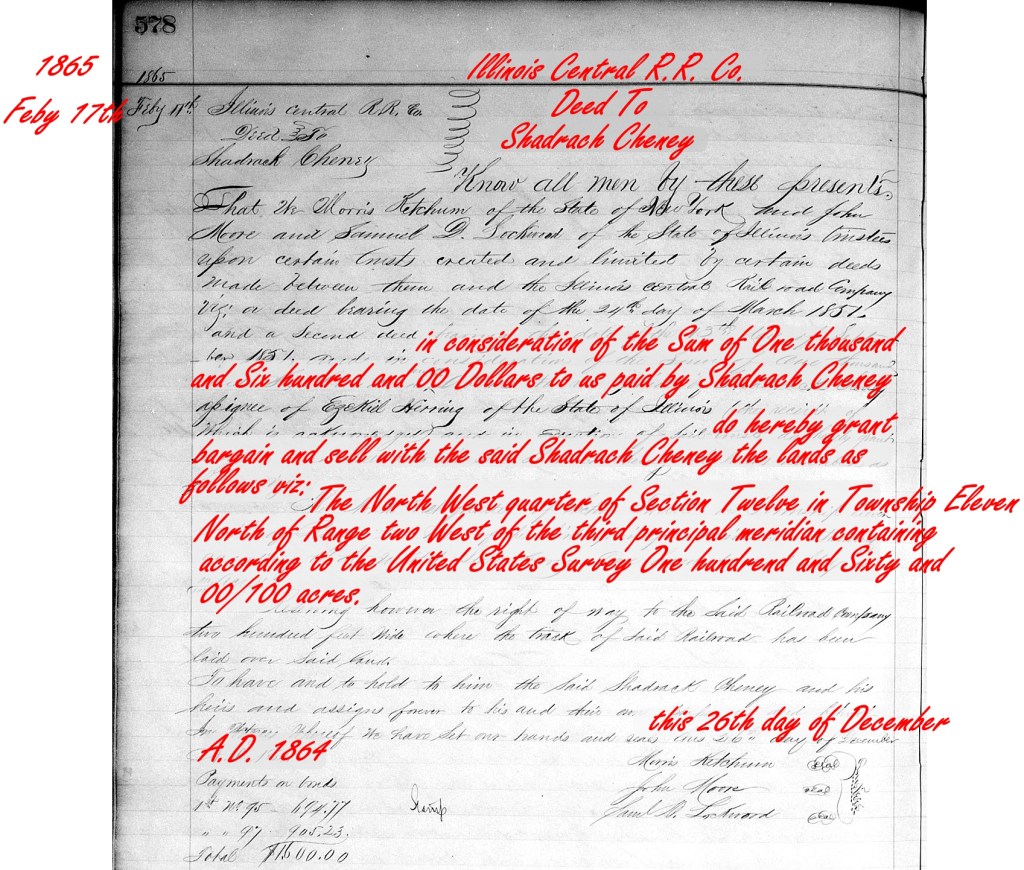 578
1865
1865
Illinois Central R.R. Co.
Feby 17th
Feby 17th
Illinois Central R.R. Co.
Deed To
Deed To
Shadrach Cheney
Shadrach Cheney
Know all men by these presents,
That we Morris Ketchum of the State of New York and John
Moore and Samuel D. Lockwood of the State of Illinois trustees
upon certain trusts created and limited by certain deeds
made between them and the Illinois central Rail road Company
viz; a deed bearing the date of the 24th day of March 1851.
and a Second deed
in consideration of the Sum of One thousand
ber 1851. and in
and Six hundred and 00 Dollars to us paid by Shadrach Cheney
assignee of Ezekiel Herring of the State of Illinois
which is acknowledged and in
do hereby grant
bargain and sell with the said Shadrach Cheney the lands as
follows viz:
The North West quarter of Section Twelve in Township Eleven
North of Range two West of the third principal meridian containing
according to the United States Survey One hundrend and Sixty and
00/100 acres.
however the right of way to the Said Railroad Company
two hundred feet wide where the track of Said Railroad has been
laid over Said land.
To have and to hold to him the Said Shadrack Cheney and his
heirs and assigns forever to his and their own
this 26th day of December
In Whereof we have Set our hands and seals this 26th day of December
A.D. 1864
Morris Ketchum seal
Payments on bonds
John Moore seal
1st No 95 - 694.77
Saml D. Lockwood seal
" " 97 - 905.23
Total $1600.00